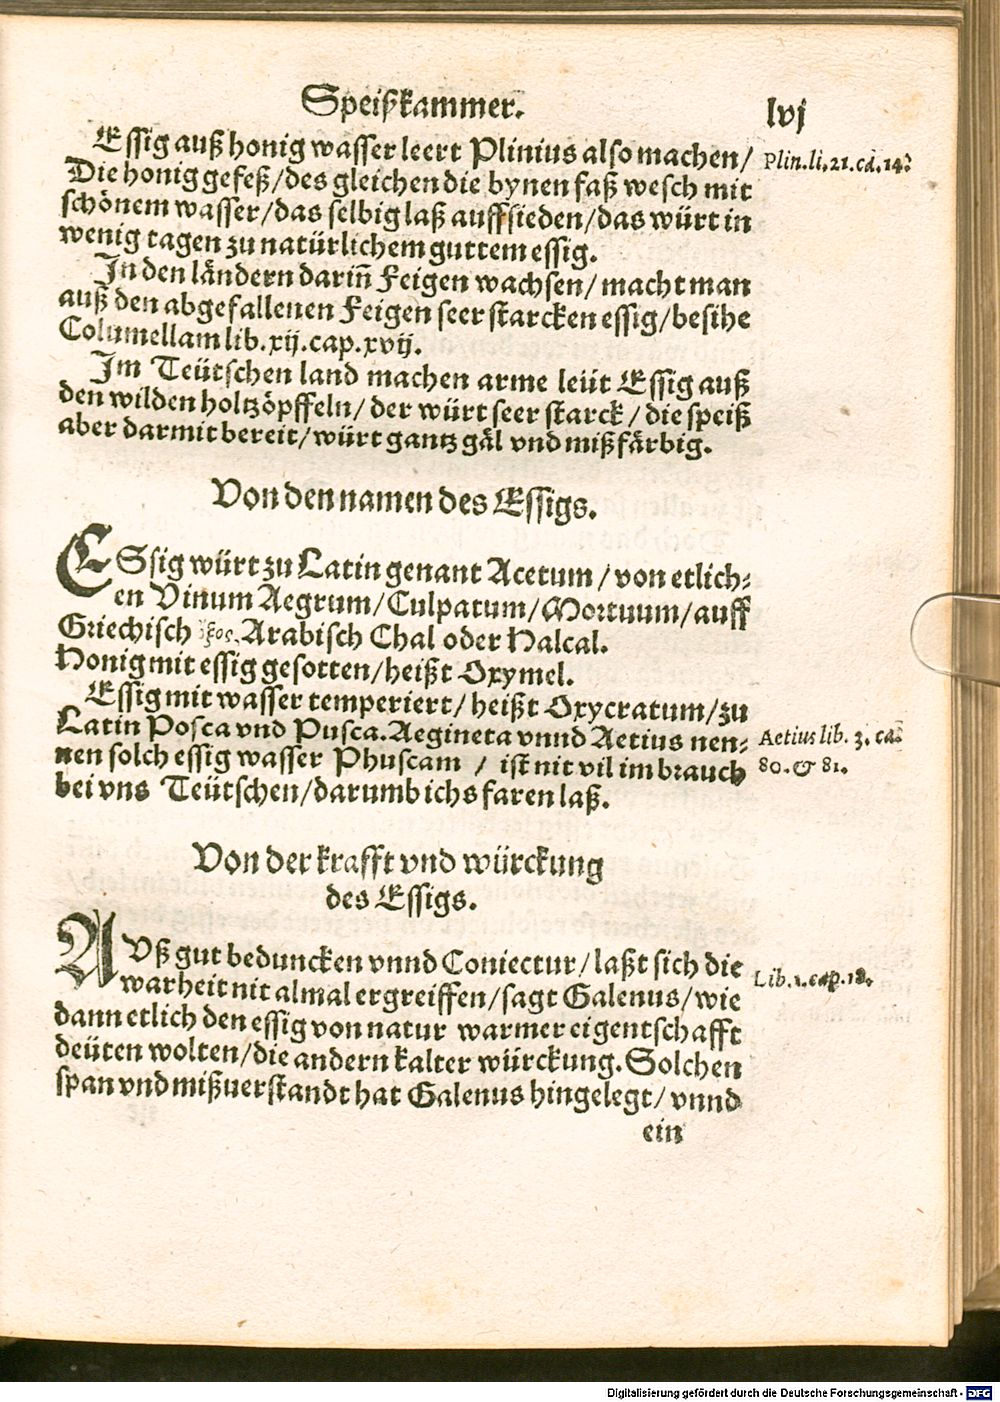 Speißkammer.
lvj
Essig auß honig wasser leert Plinius also machen/
Plin. li. 21. ca. 14.
Die honig gefeß/des gleichen die bynen faß wesch mit
schönem wasser/das selbig laß auffsieden/das würt in
wenig tagen zu natürlichem guttem essig.
In den ländern darin̄ Feigen wachsen/ macht man
auß den abgefallenen Feigen seer starcken essig/besihe
Columellam lib. xij. cap. xvij.
Im Teütschen land machen arme leüt Essig auß
den wilden holtzöpffeln/ der würt seer starck/ die speiß
aber darmit bereit/würt gantz gäl vnd mißfärbig.
Von den namen des Essigs.
ESsig würt zu Latin genant Acetum/von etlich-
en Vinum Aegrum/Culpatum/Mortuum/auff
Griechisch ὄξος. Arabisch Chal oder Halcal.
Honig mit essig gesotten/heißt Oxymel.
Essig mit wasser temperiert/ heißt Oxycratum/zu
Latin Posca vnd Pusca. Aegineta vnnd Aetius nen-
Aetius lib. 3. ca.
nen solch essig wasser Phuscam / ist nit vil im brauch
80. & 81.
bei vns Teütschen/darumb ichs faren laß.
Von der krafft vnd würckung
des Essigs.
AVß gut beduncken vnnd Coniectur/laßt sich die
Lib. 1. cap. 18.
warheit nit almal ergreiffen/sagt Galenus/wie
dann etlich den essig von natur warmer eigentschafft
deüten wolten/die andern kalter würckung. Solchen
span vnd mißuerstandt hat Galenus hingelegt/ vnnd
ein
Digitalisierung gefördert durch die Deutsche Forschungsgemeinschaft - DFG